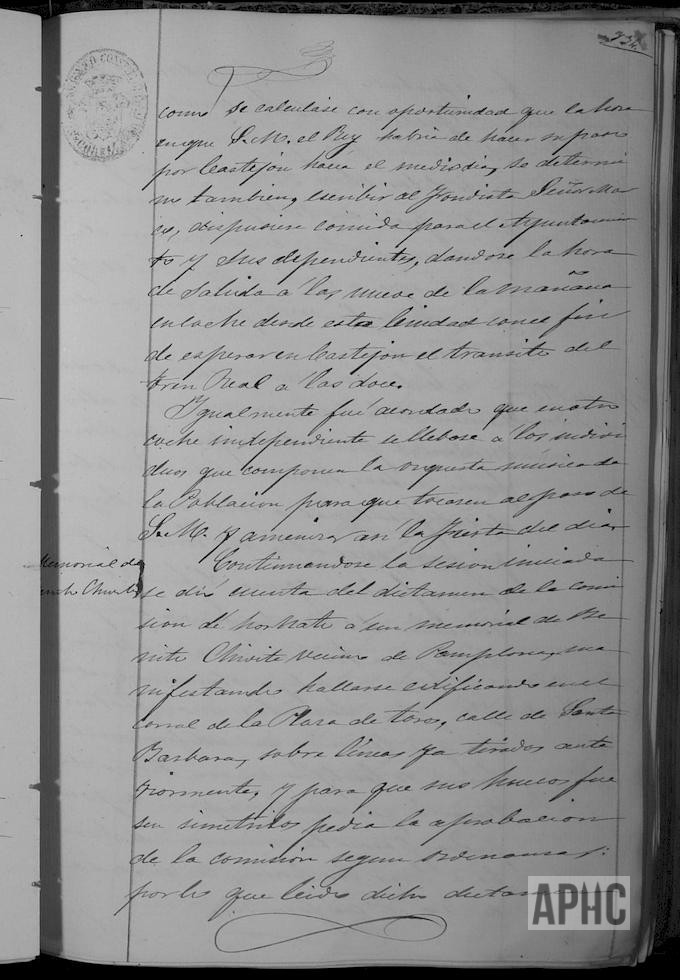 como se calculase con oportunidad que la hora
en que S. M. el Rey habria de hacer su paso
por Castejon hacia el mediodia, se determi
no tambien, escribir al Fondista Señor Ma
dispusiera comida para el Ayuntamien
to y sus dependientes, dandose la hora
de salida a las nueve de la mañana
en coche desde esta Ciudad con el fin
de esperar en Castejon el transito del
tren Real a las doce.
Igualmente fué acordado que en otro
coche independiente se llebase a los indivi
duos que componen la orquesta música de
la Poblacion para que tocasen al paso de
S. M. y amenizaran la fiesta del dia,
Memorial de
Chivite
Continuandose la sesion iniciada
se dió cuenta del dictamen de la comi
sion de hornato a un memorial de Be
nito Chivite vecino de Pamplona, ma
nifestando hallarse edificando en el
corral de la Plaza de toros, calle de Santa
Barbara, sobre lineas ya tirados ante
riormente, y para que sus huecos fue
sen simetricos pedia la aprobacion
de la comision segun ordenanzas:
por lo que leido dicho dictamen
APHC